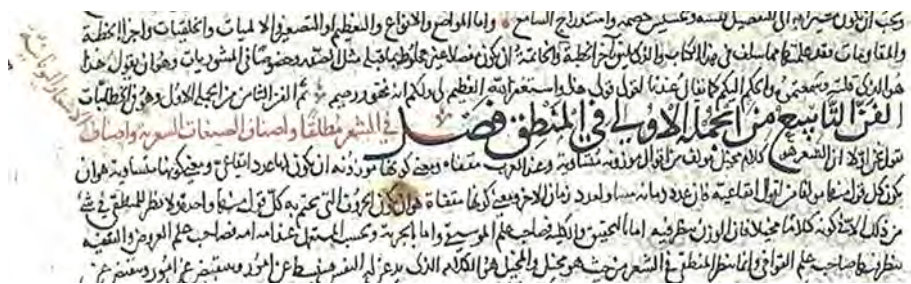 ويجب ان يكون
التفصيل لنفسه وتخسيس خصمه واستدراج السامع واما المواضع والانواع
والمقاومات فقد علمتها مما سلف في هذا الكتاب والذي يليق بآخر الخطبة والخاتمة ان يكون مفصلا غير مخلوط بما قبله مثل الصدر وخصوصا في المشوريات وهو ان يقول هذا
هو الذي قلته وسمعتموه والحكم اليكم كما نقول نحن عندنا اقول قولي هذا واستغفر الله العظيم لي ولكم انه غفور رحيم تم الفن الثامن من الجملة الاولى وهو في الخطابة
الفن التاسع من الجملة الاولى في المنطق فصل في الشعر مطلقا واصناف الصيغات الشعرية واصناف
نقول نحن اولا ان الشعر هو كلام مخيل مولف من اقوال موزونة متساوية وعند العرب مقفاة ومعنى كونها موزونة ان يكون لها عدد ايقاعي ومعنى كونها متساوية هو ان
يكون كل قول منها مولفا من اقوال ايقاعية فان عدد زمانه مساو لعدد زمان الاخر ومعنى كونها مقفاة هو ان يكون الحروف التي يختم به كل قول منها واحدة ولا نظر للمنطقي في شيء
من ذلك الا في كونه كلاما مخيلا فان الوزن ينظر فيه اما بالتحقيق والكلية فصاحب علم الموسيقى واما بالتجزية وبحسب المستعمل عند امة امة فصاحب علم العروض والتقفية
ينظر فيها صاحب علم القوافي وانما ينظر المنطقي في الشعر من حيث هو مخيل والمخيل هو الكلام الذي يذعن له النفس فينبسط عن امور وينقبض عن امور